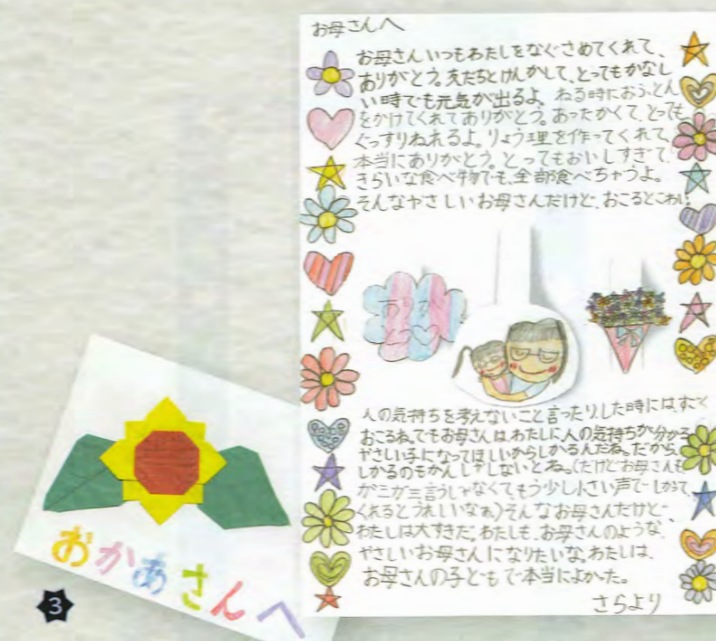 お母さんへ
お母さんいつもわたしをなぐさめてくれて、
ありがとう。友だちとけんかして、とってもかなし
い時でも元気が出るよ。ねる時におふとん
をかけてくれてありがとう。あったかくて、とっても
ぐっすりねれるよ。りょう理を作ってくれて
本当にありがとう。とってもおいしすぎて
きらいな食べ物でも、全部食べちゃうよ。
そんなやさしいお母さんだけど、おこるとこわい!
人の気持ちを考えないこと言ったりした時にはすご
おこるね。でもお母さんは、わたしに人の気持ちが分かる
やさしい子になってほしいからしかるんだね。だから
しかるのもかんしゃしないとね。(だけどお母さんも
ガミガミ言うじゃなくてもう少し小さい声でしかって
くれるとうれしいなぁ)そんなお母さんだけど
わたしは大すきだ。わたしも、お母さんのような
やさしいお母さんになりたいな。わたしは、
お母さんの子どもで本当によかった。
さらより
おかあさんへ
3